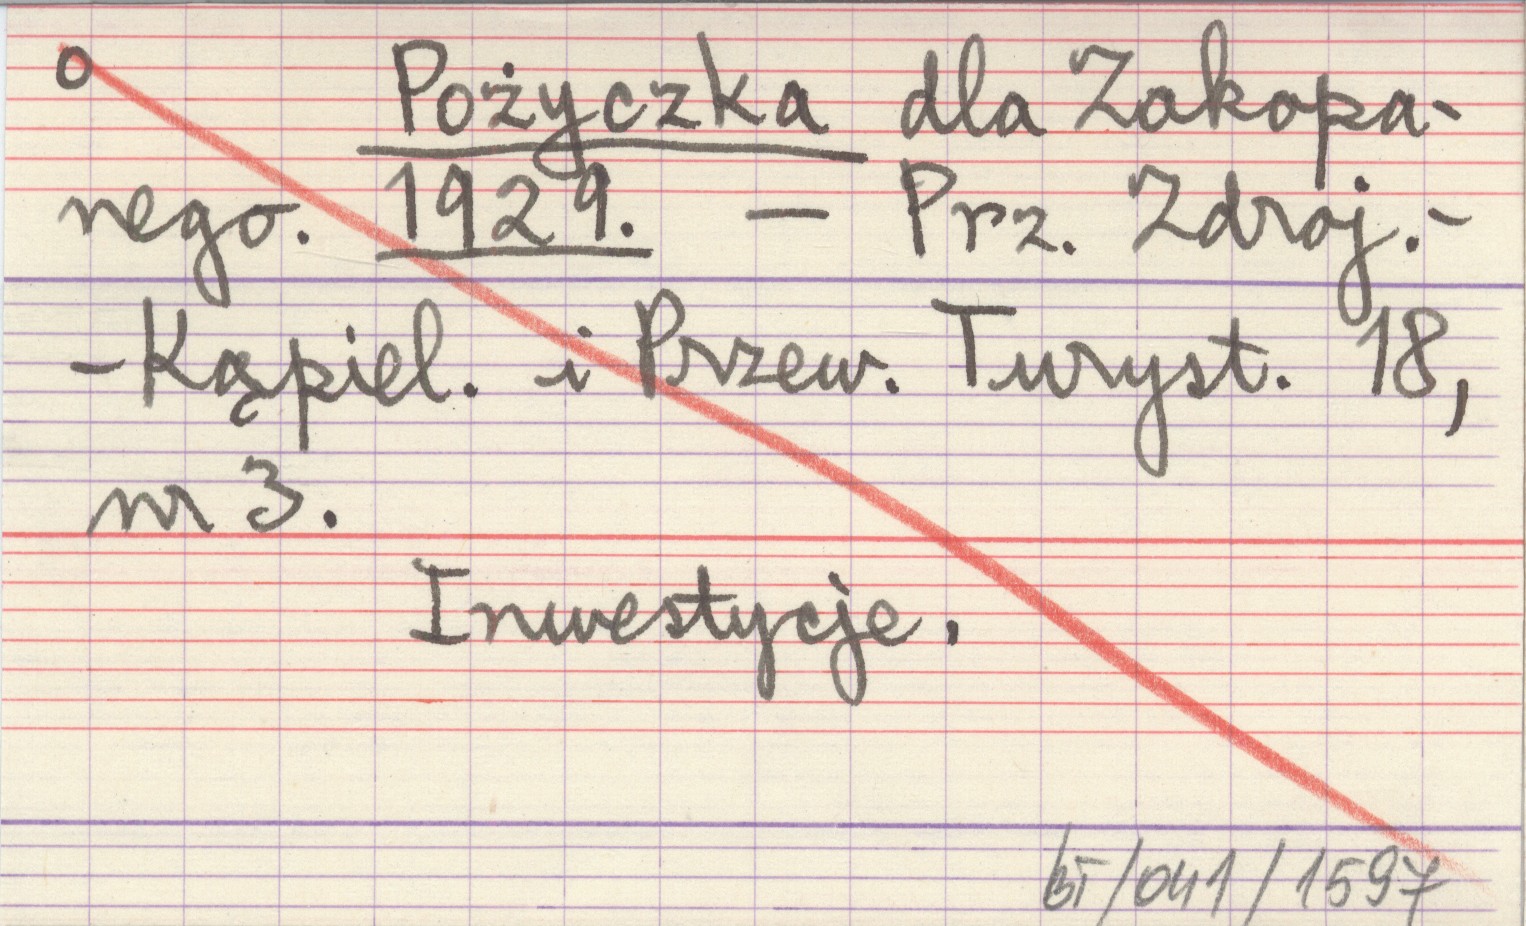 o Pożyczka dla Zakopa-
nego. 1929. — Prz. Zdroj.-
-Kąpiel. i Przew. Turyst. 18,
nr 3.
Inwestycje.
BT/041/1597